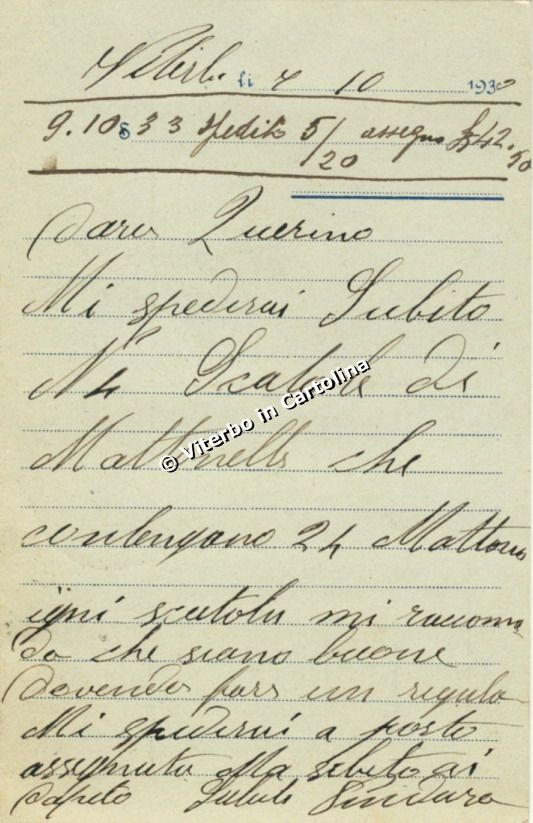 Viterbo li 7 10 1930
9.10s 33 spedito 5/20 assegno £ 42.50
Caro Querino
Mi spedirai Subito
N 4 Scatole di
© Viterbo in Cartolina
Mattonelle che
contengano 24 Mattone
igni scatola mi raccoman
do che siano buone
dovendo fare un regalo
Mi spedirai a posto
assegnato Ma subito ai
capito Saluti